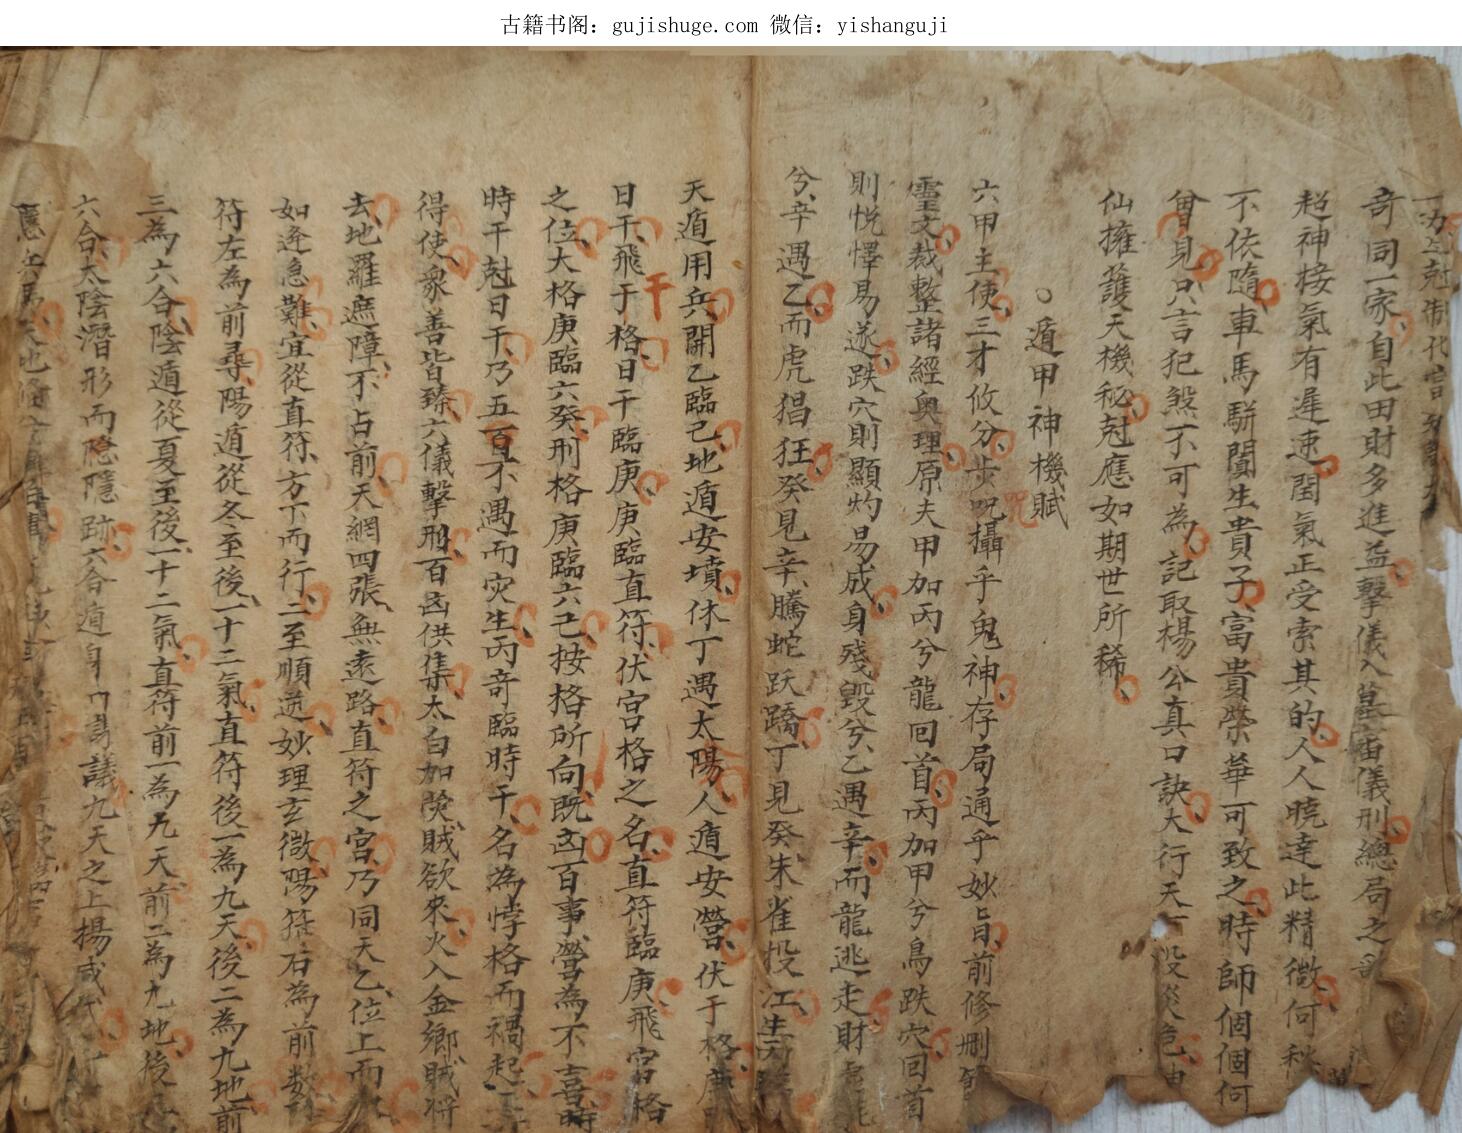 古籍书阁：gujishuge.com 微信：yishanguji
奇同一家自此田財多進益擊儀入墓宙儀刑總局之
超神接氣有遲速閏氣正受索其的人人曉達此精微何
不依隨車馬駢闐生貴子富貴榮華可致之時師個個何
曾見只言犯煞不可為記取楊公真口訣大行天下没災危
仙擁護天機秘尅應如期世所稀
遁甲神機賦
六甲主使三才攸分步呪攝乎鬼神存局通乎妙旨前修刪
呪
靈文裁整諸經奥理原夫甲加丙兮龍回首丙加甲兮鳥跌穴回首
則悅懌易遂跌穴則顯灼易成身殘毀兮乙遇辛而龍逃走財
兮辛遇乙而虎猖狂癸見辛騰蛇跃蹻丁見癸朱雀投江生
天遁用兵開乙臨己地遁安墳休丁遇太陽人遁安營伏于格庚
日干飛于格日干臨庚庚臨直符伏宮格之名直符臨庚飛宮格
干
之位大格庚臨六癸刑格庚臨六己按格所向既凶百事營為不喜時
時干尅日干乃五百不遇而灾生丙奇臨時干名為悖格而禍起
得使衆善皆臻六儀擊刑百凶供集太白加熒賊欲來火入金鄉賊將
去地羅遮障不占前天網四張無遠路直符之宮乃同天乙位上而
如逢急難宜從直符方下而行二至順逆妙理玄微陽符右為前數
符左為前尋陽遁從冬至後一十二氣直符後一為九天後二為九地前
三為六合陰遁從夏至後一十二氣直符前一為九天前二為九地後
六合太陰潛形而隐隱跡六合遁身 議九天之上揚威